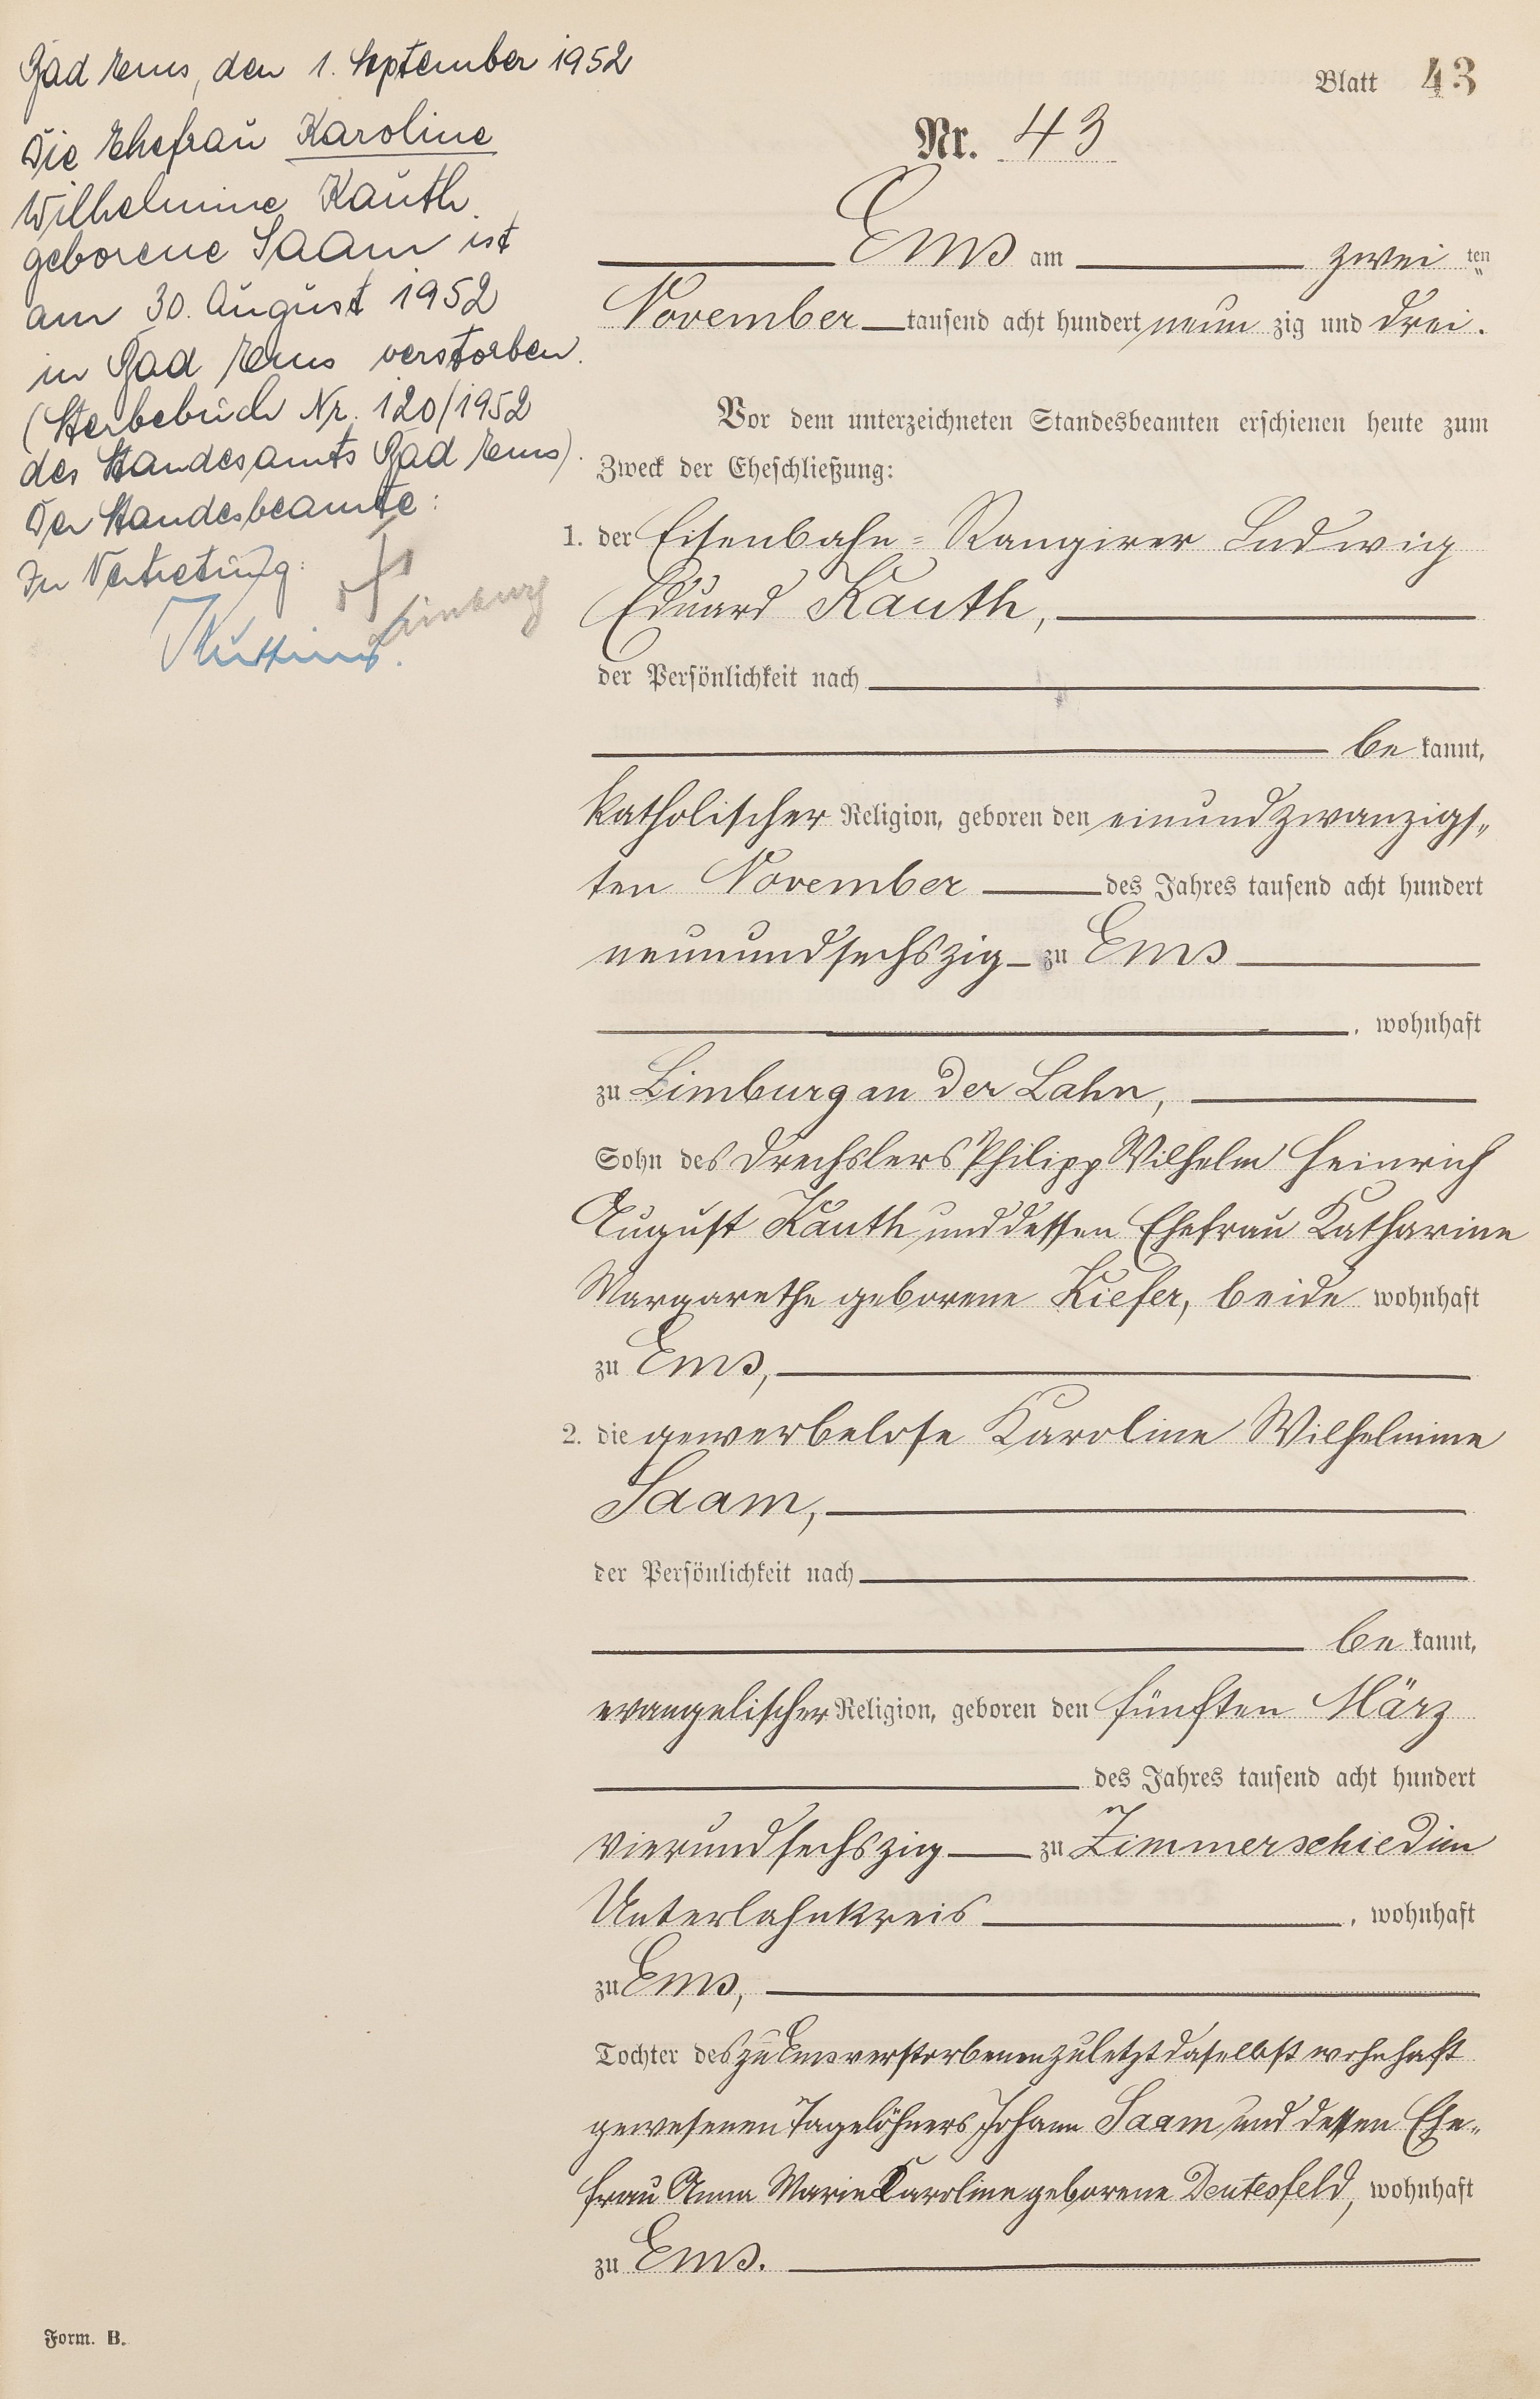 Bad Ems, den 1. September 1952
Die Ehefrau Karoline
Wilhelmine Kauth
geborene Saam ist
am 30. August 1952
in Bad Ems verstorben.
(Sterbebuch Nr. 120/1952
des Standesamts Bad Ems).
Der Standesbeamte:
In Vertretung:
Limburg
Blatt 43
Nr. 43
Ems am zwei ten
November tausend acht hundert neun zig und drei.
Vor dem unterzeichneten Standesbeamten erschienen heute zum
Zweck der Eheschließung:
1. der Eisenbahn-Rangirer Ludwig
Eduard Kauth,
der Persönlichkeit nach
be kannt,
katholischer Religion, geboren den einundzwanzigs-
ten November des Jahres tausend acht hundert
neunundsechszig zu Ems
, wohnhaft
zu Limburg an der Lahn,
Sohn des Drechslers Philipp Wilhelm Heinrich
August Kauth und dessen Ehefrau Katharine
Margarethe geborene Kiefer, beide wohnhaft
zu Ems,
2. die gewerbelose Karoline Wilhelmine
Saam,
der Persönlichkeit nach
be kannt,
evangelischer Religion, geboren den fünften März
des Jahres tausend acht hundert
vierundsechszig zu Zimmerschied im
Unterlahnkreis , wohnhaft
zu Ems,
Tochter des zu Ems verstorbenen zuletzt daselbst wohnhaft
gewesenen Tagelöhners Johann Saam und dessen Ehe-
frau Anna Marie Karoline geborene Deutesfeld, wohnhaft
zu Ems.
Form. B.